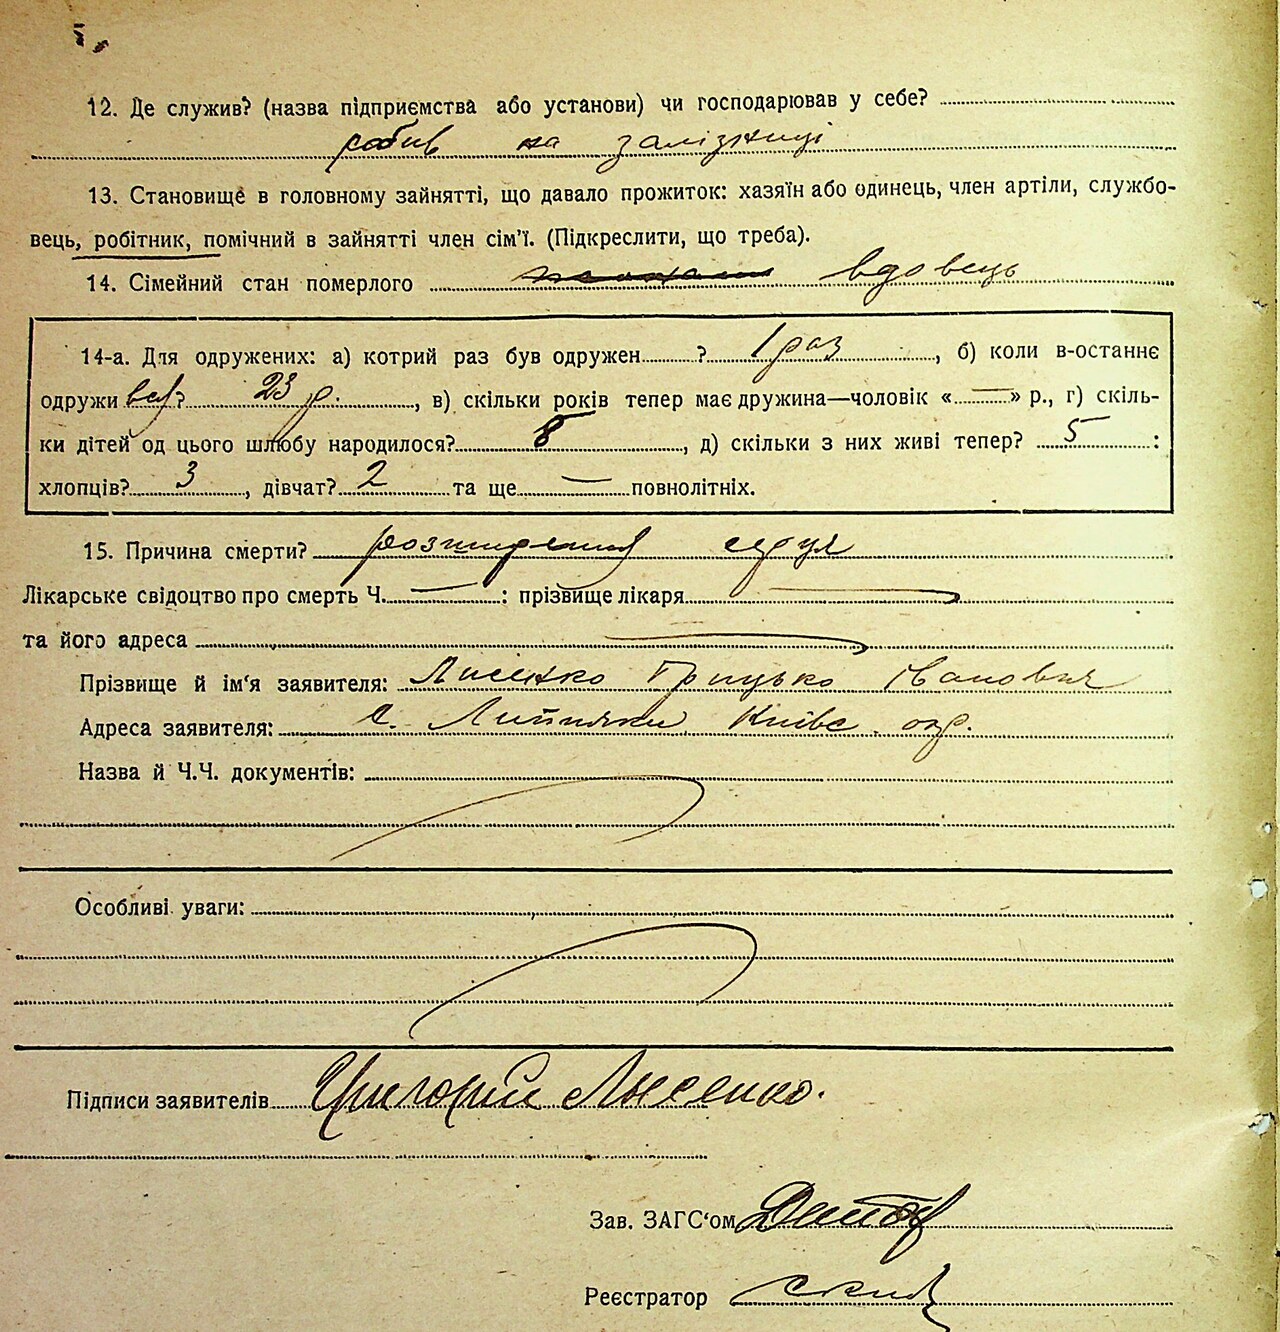 12. Де служив? (назва підприємства або установи) чи господарював у себе?
робив на залізниці
13. Становище в головному зайнятті, що давало прожиток: хазяїн або одинець, член артіли, службо-
вець, робітник, помічний в зайнятті член сім'ї. (Підкреслити, що треба).
14. Сімейний стан померлого вдовець
14-а. Для одружених: а) котрий раз був одружен ? 1 раз, б) коли в-останнє
одруживсь? 23 р., в) скільки років тепер має дружина—чоловік «—» р., г) скіль-
ки дітей од цього шлюбу народилося? 8, д) скільки з них живі тепер? 5 :
хлопців? 3, дівчат? 2 та ще — повнолітніх.
15. Причина смерти? розширення серця
Лікарське свідоцтво про смерть Ч. — : прізвище лікаря —
та його адреса —
Прізвище й ім'я заявителя: Лисенко Грицько Іванович
Адреса заявителя: с. Київс. окр.
Назва й Ч.Ч. документів:
Особливі уваги:
Підписи заявителів Григорий Лысенко.
Зав. ЗАГС'ом
Реєстратор